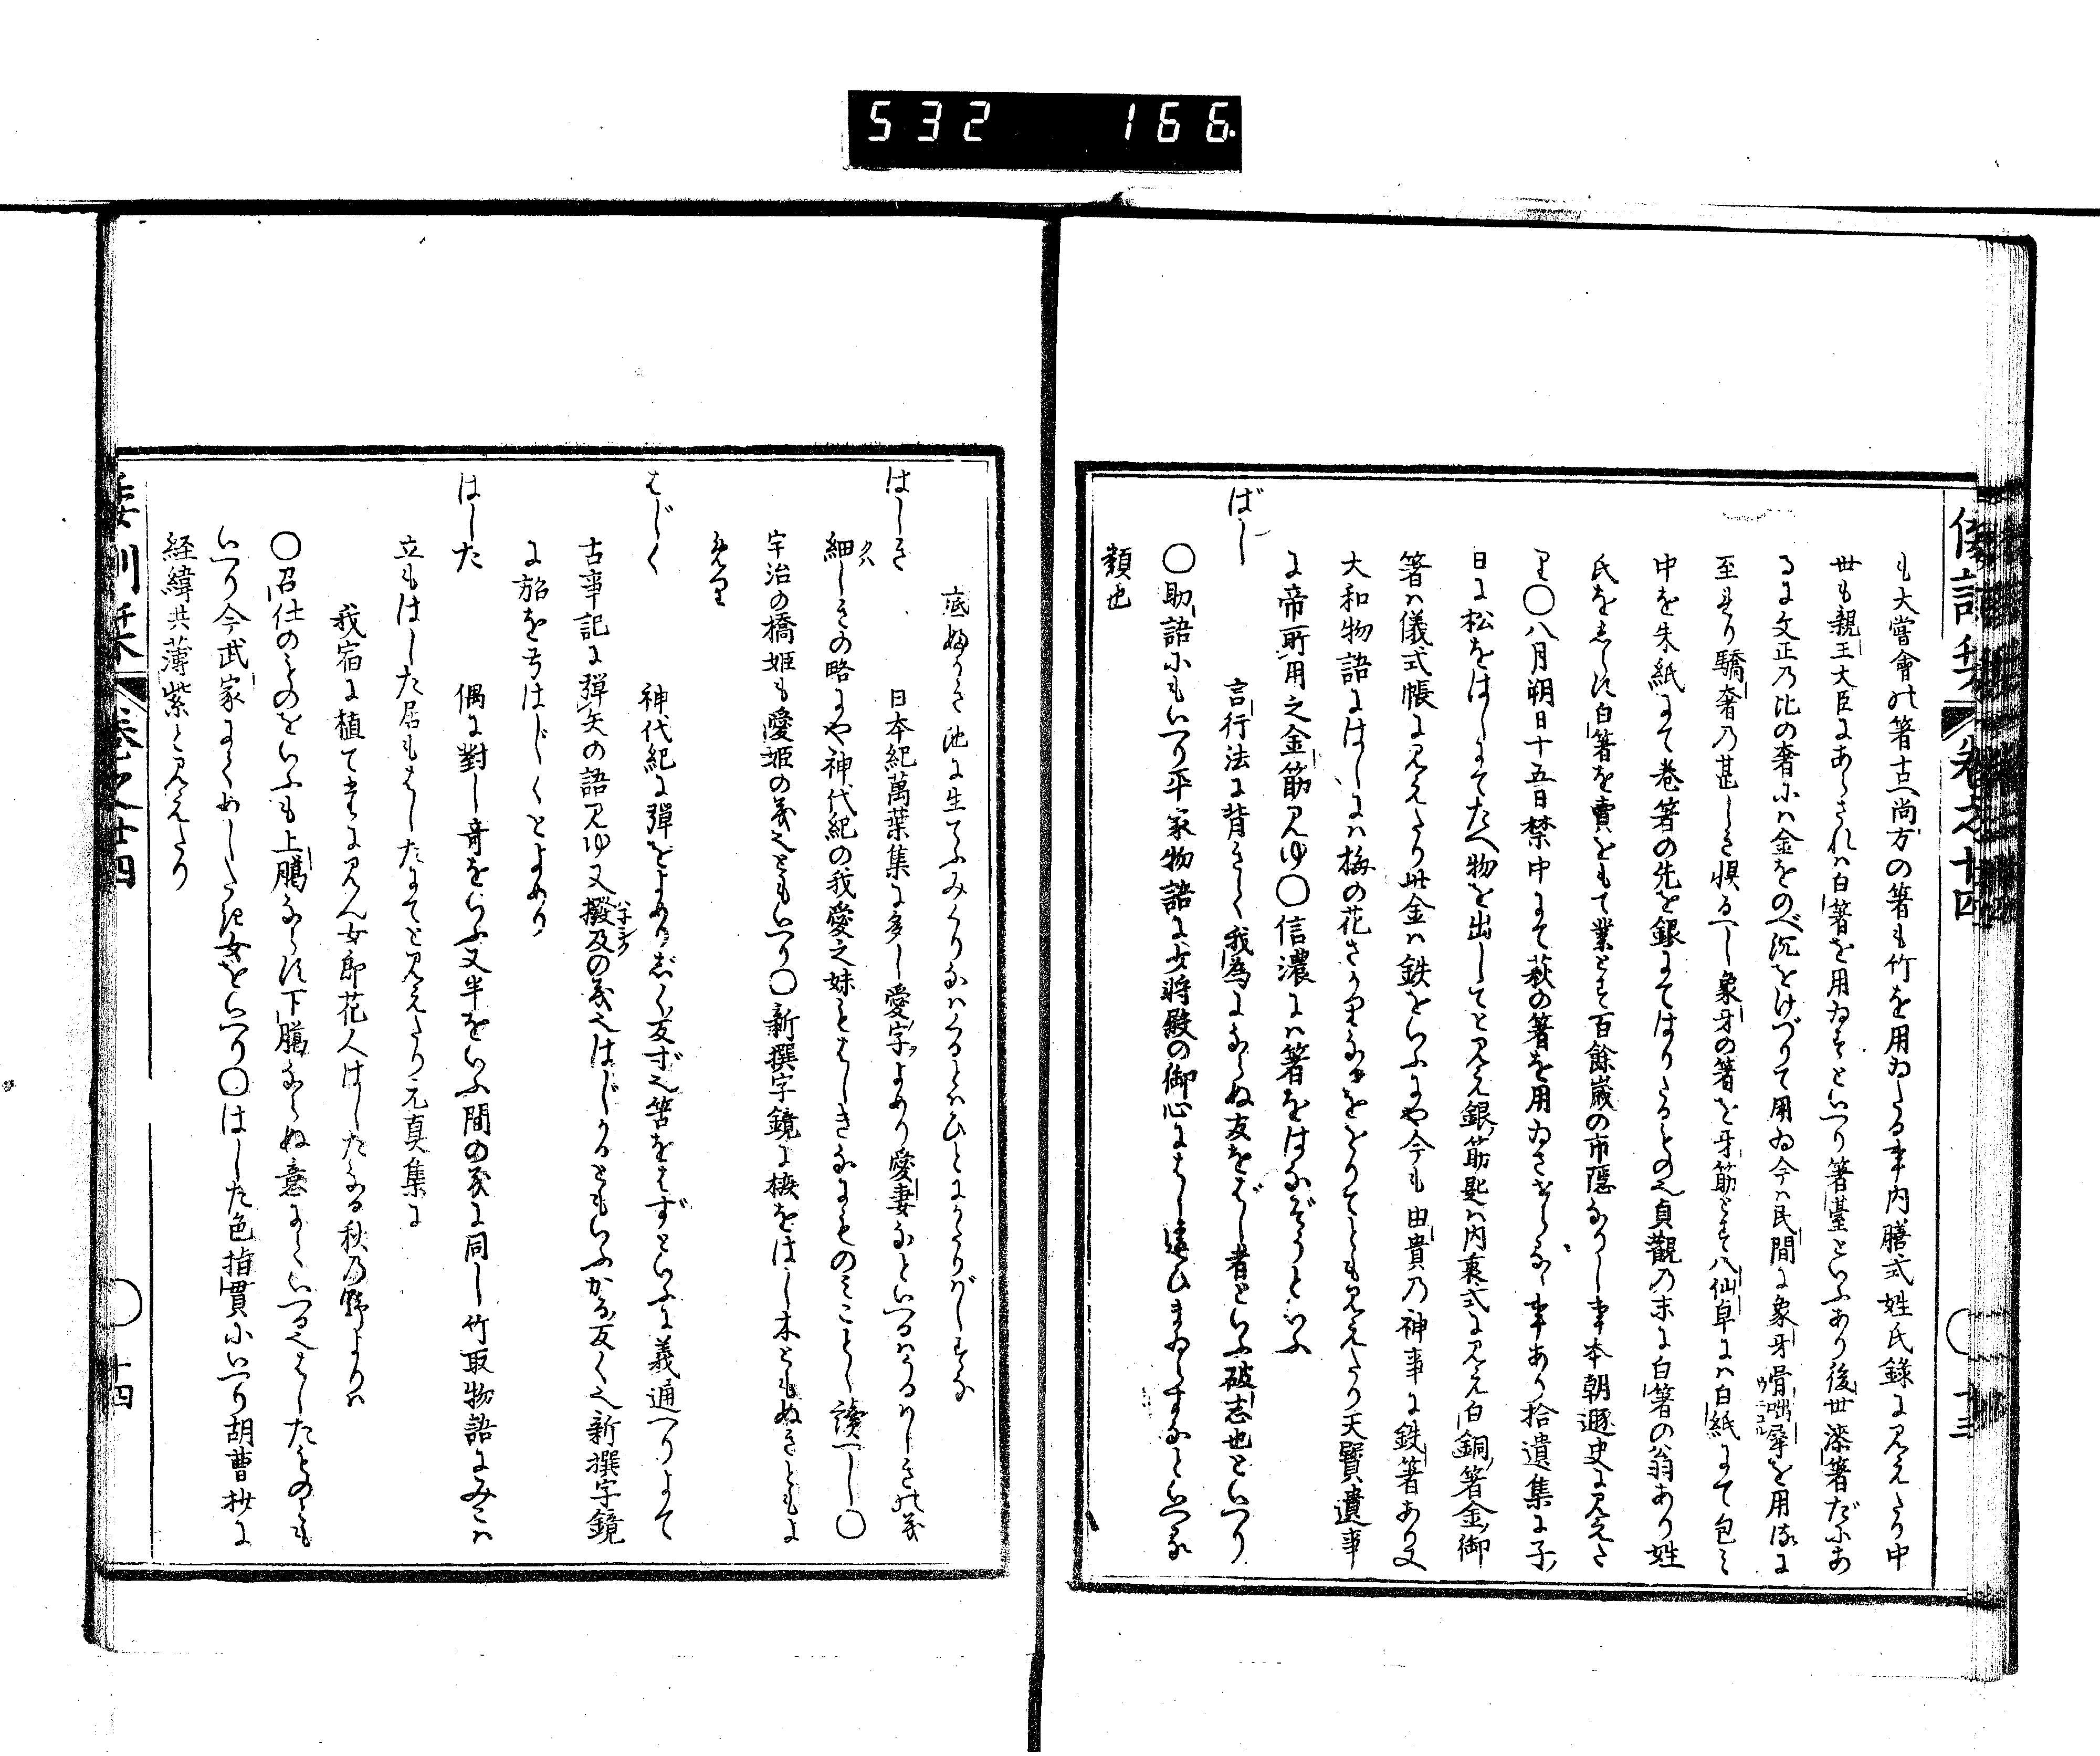 532 166.
倭訓栞 巻之廿四 ○ 十三
も大嘗會の箸古へ尚方の箸も竹を用ゐたる事内膳式姓氏録に見えたり中
世も親王大臣にあらされハ白箸を用ゐすといへり箸臺といふあり後世漆箸だにあ
るに文正乃比の奢にハ金をのべ沉をけづりて用ゐ今ハ民間に象牙骨咄犀を用るに
至れり驕奢乃甚しき懼るへし象牙の箸を牙筯とす八仙卓にハ白紙にて包み
中を朱紙にて巻箸の先を銀にてはりたるもの也貞觀乃末に白箸の翁あり姓
氏をしらす白箸を賣をもて業とす百餘歳の市隠なりし事本朝遯史に見えた
り○八月朔日十五日禁中にて萩の箸を用ゐさせらるゝ事あり拾遺集に子
日に松をはしにてたへ物を出してと見え銀筯匙ハ内裏式に見え白銅箸金御
箸ハ儀式帳に見えたり世金ハ鉄をいふにや今も由貴乃神事に鉄箸あり又
大和物語にはしにハ梅の花さかりなるををりてとも見えたり天寳遺事
に帝所用之金筯見ゆ○信濃にハ箸をはなぞうといふ
ばし 言行法に背きく我為にならぬ友をばし者といふ破志也といへり
○助語にもいへり平家物語に少将殿の御心にはし違ひまゐらすなといへる
類也
底ぬるき池に生てふみくりなハくるとハひとにかたりばしすな
はしき 日本紀萬葉集に多し愛字をよめり愛妻なといへるハうるハしきの義
細しきの略にや神代紀の我愛之妹をはしきなにものみことゝ讀へし○
宇治の橋姫も愛姫の義也ともいへり○新撰字鏡に榱をはし木ともぬきともよ
めり
はじく 神代紀に彈をよめりじく反ず也筈をはずといふに義通へりよて
古事記に彈矢の語見ゆ又撥及の義也はじかるともいふかる反く也新撰字鏡
に弨を弓はじくとよめり
はした 偶に對し竒をいふ又半をいふ間の義に同し竹取物語にみこハ
立もはした居もはしたにてと見えたり元真集に
我宿に植てたに見ん女郎花人はしたなる秋乃野よりハ
○召仕のものをいふも上﨟ならす下﨟ならぬ意にていへる也はしたものとも
いへり今武家にてくめしたき女をいへり○はした色指貫にいへり胡曹抄に
経緯共薄紫と見えたり
倭訓栞 巻之廿四 ○ 十四